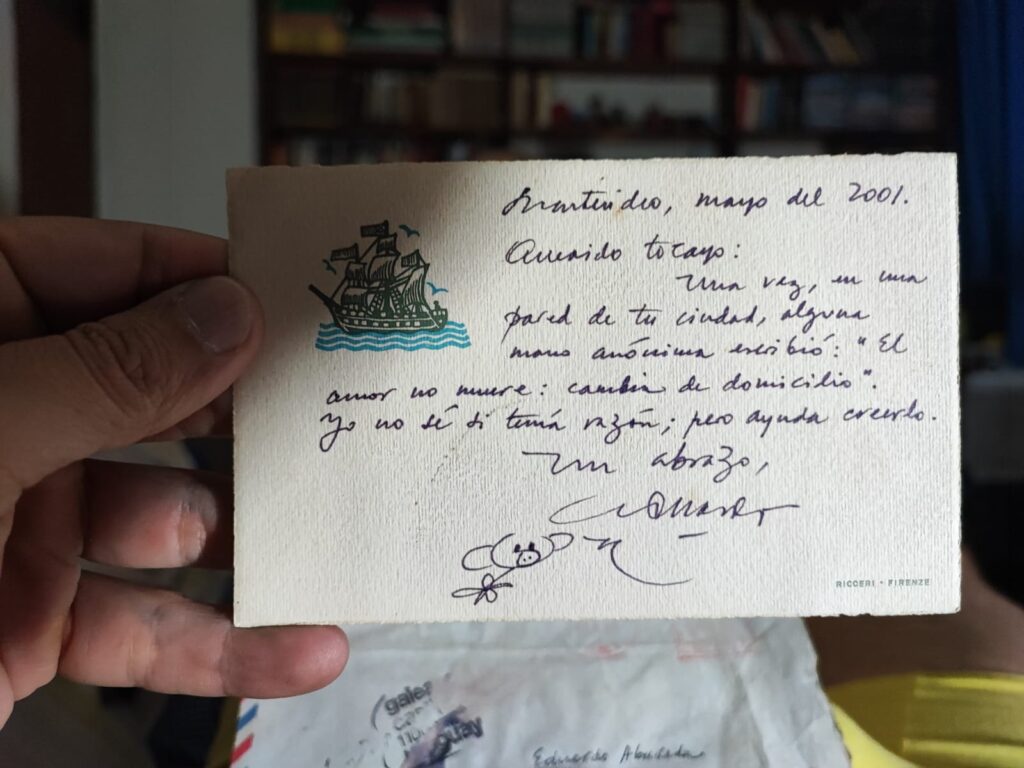 Montevideo, mayo del 2001.
Querido tocayo:
Una vez, en una
pared de tu ciudad, alguna
mano anónima escribió: "El
amor no muere: cambia de domicilio".
Yo no sé si tenía razón; pero ayuda creerlo.
Un abrazo,
RICCERI - FIRENZE
Eduardo